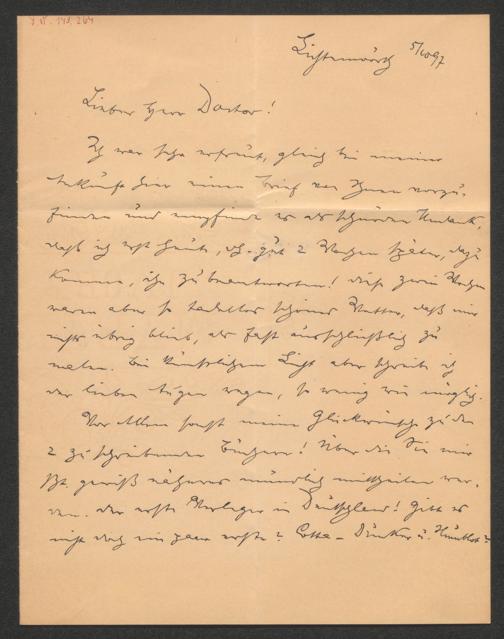 I. N. 143.264
Lichtenwörth 5/10 97
Lieber Herr Doctor!
Ich war sehr erfreut, gleich bei meiner
Ankunft hier einen Brief von Ihnen vorzu-
finden und empfinde es als schnöden Undank,
daß ich erst heute, d. h. gut 2 Wochen später, dazu
komme, ihn zu beantworten! Diese zwei Wochen
waren aber so tadellos schönes Wetter, daß mir
nichts übrig blieb, als fast ausschließlich zu
malen. Bei künstlichem Licht aber schreibe ich
der lieben Augen wegen, so wenig wie möglich.
Vor Allem sonst meine Glückwünsche zu den
2 zu schreibenden Büchern! Über die Sie mir
gewiß näheres mündlich mittheilen wer-
den. Der erste Verleger in Deutschland! Gibt es
nicht doch ein paar erste? Cotta – Duncker u. Humblot?